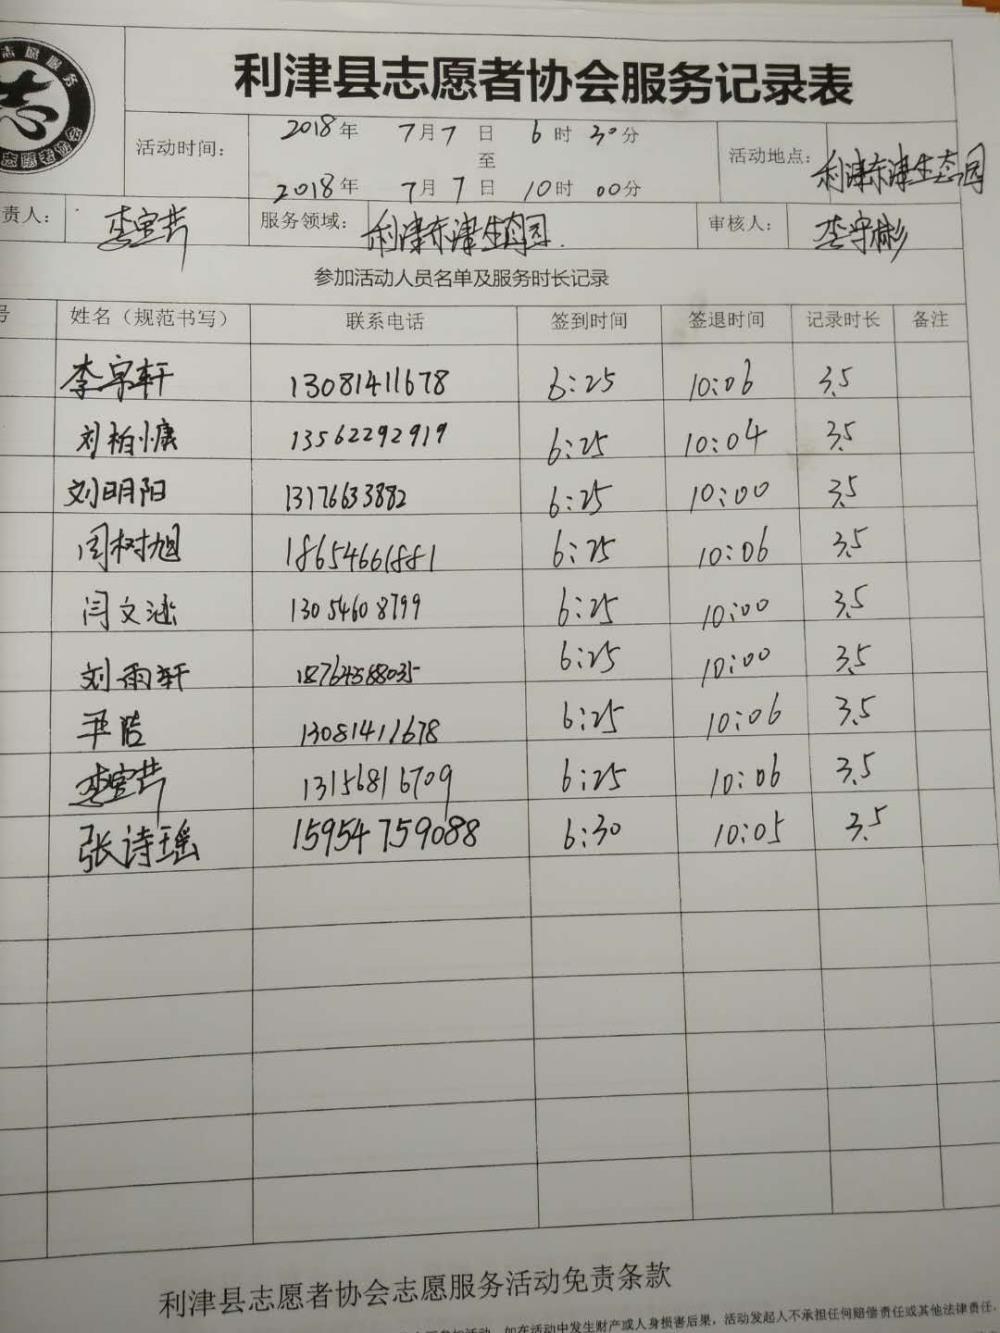 志愿服务
志
志愿者协会
利津县志愿者协会服务记录表
活动时间： 2018年 7月7日 6时30分
至
2018年 7月7日 10时00分
活动地点： 利津东津生态园
责人：
服务领域： 利津东津生态园.
审核人： 李守彬
参加活动人员名单及服务时长记录
号 姓名（规范书写） 联系电话 签到时间 签退时间 记录时长 备注
李宗轩 13081411678 6:25 10:06 3.5
刘柏慷 13562292919 6:25 10:04 3.5
刘明阳 13176633882 6:25 10:00 3.5
周树旭 18654661881 6:25 10:06 3.5
闫文涵 13054608799 6:25 10:00 3.5
刘雨轩 6:25 10:00 3.5
13081411678 6:25 10:06 3.5
13156816709 6:25 10:06 3.5
张诗瑶 15954759088 6:30 10:05 3.5
利津县志愿者协会志愿服务活动免责条款
如在活动中发生财产或人身损害后果，活动发起人不承担任何赔偿责任或其他法律责任.